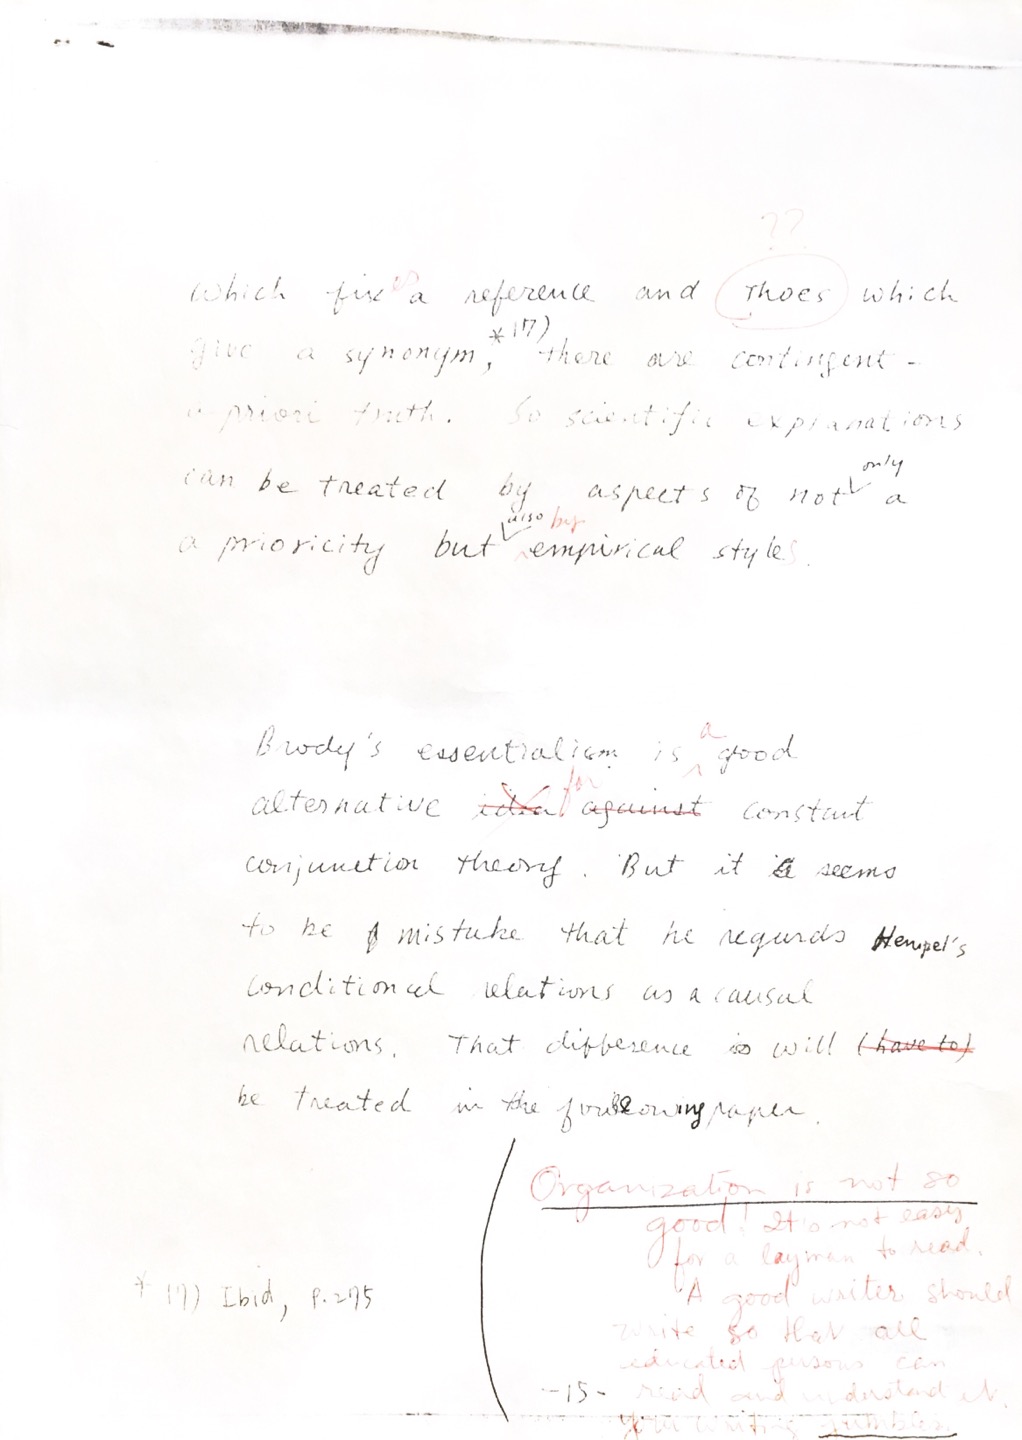 ??
which fixes a reference and Thoes which
give a synonym,*17) there are contingent-
a priori truth. So scientific expranations
can be treated by aspects of not only a
a prioricity but also by empirical styles.
Brody's essentialism is a good
alternative idea for against constant
conjunction theory. But it is seems
to be a mistake that he regards Hempel's
conditional relations as a causal
relations. That difference is will (have to)
be treated in the following paper.
Organization is not so
good! It's not easy
for a layman to read.
A good writer should
write so that all
educated persons can
read and understand it.
Your writing rumbles.
* 17) Ibid, p.275
-15-